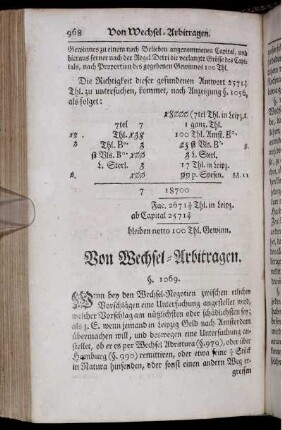 968 Von Wechsel-Arbitragen.
Gewinnes zu einem nach Belieben angenommenen Capital, und
hieraus ferner nach der Regel Detri die verlangte Grösse des Capi-
tals, nach Proportion des gegebenen Gewinnes 100 Thl.
Die Richtigkeit dieser gefundenen Antwort 2571 3/7
Thl. zu untersuchen, kommet, nach Anzeigung §. 1056,
als folget:
(7tel Thl. in Leipz.
7tel 7 1 gantz. Thl.
Thl. 100 Thl.
Thl. 3
ßl Vls. 3 L. Sterl.
L. Sterl. 3 17 Thl. in Leipz.
p. Spesen.
7 18700
Fac. 2671 3/7 Thl. in Leipz.
ab Capital 2571 3/7
bleiben netto 100 Thl. Gewinn.
Von Wechsel-Arbitragen.
§. 1069.
Wenn bey den Wechsel-Negotien zwischen etlichen
Vorschlägen eine Untersuchung angestellet wird,
welcher Vorschlag am nützlichsten oder schädlichsten sey;
als z. E. wenn jemand in Leipzig Geld nach Amsterdam
übermachen will, und deswegen eine Untersuchung an-
stellet, ob er es per Wechsel Adrittura (§. 979.) oder über
Hamburg (§. 990) remittiren, oder etwa
in Natura hinsenden, oder sonst einen andern Weg er-
greifen